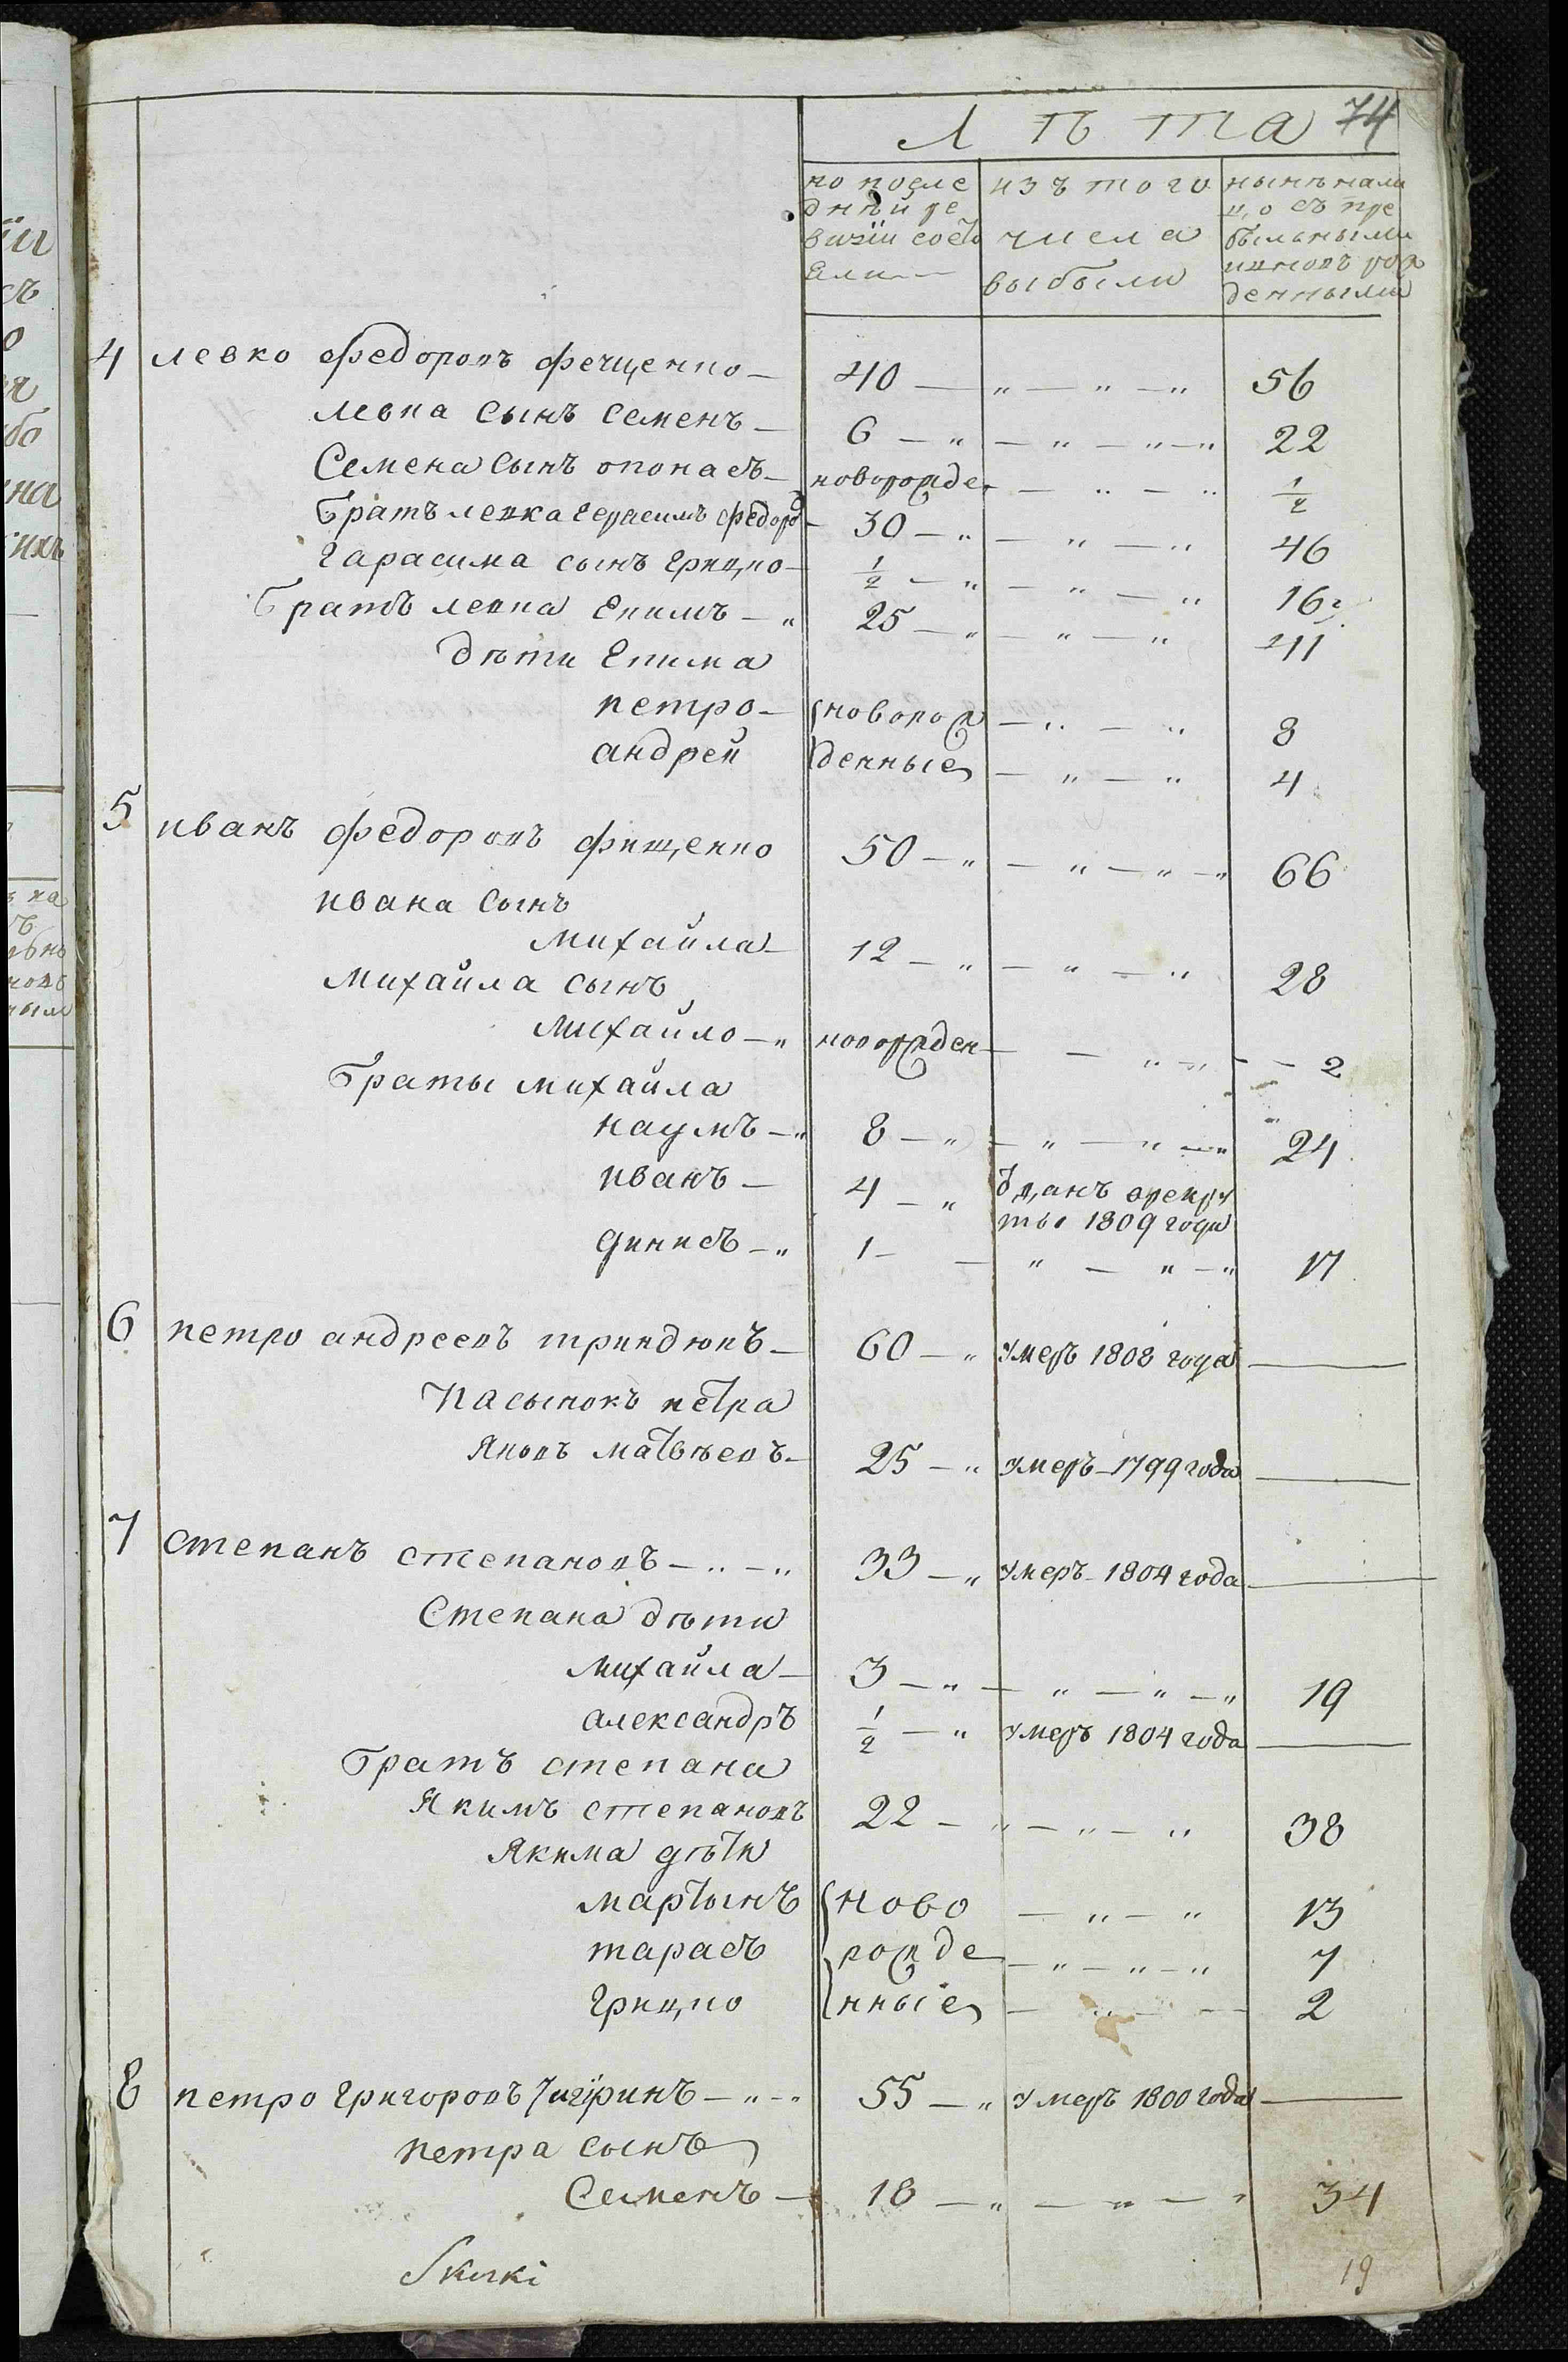 Лѣта 74
по после изъ того нынѣ нали
дней ре числа ц,о съ при
визіи сост выбыли быльными
яли — иновъ рож
денными
4 левко федоровъ фещенко — 40 — „ — „ — „ 56
левка сынъ семенъ — 6 — „ — „ — „ — „ 22
Семена сынъ опонасъ — новорожде — „ — „ 1/2
Братъ левка Герасимъ федоро — 30 — „ — „ — „ 46
Гарасима сынъ грицко — 1/2 — „ — „ — „ 16
Братъ левка Екимъ — „ 25 — „ — „ — „ 41
дѣти Екима
петро — новорож — „ — „ 8
андрей денные — „ — „ 4
5 иванъ федоровъ фищенко 50 — „ — „ — „ — „ 66
ивана сынъ
михайла — 12 — „ — „ — „ 28
михайла сынъ
михайло — „ новорожден — — „ — „ — — 2
Браты михайла
наумъ — „ 8 — „ — „ — „ — „ 24
иванъ — 4 — „ ѿданъ врекру
тъ 1809 года
динисъ — „ 1 — — „ — „ — „ 17
6 петро андреевъ триндюкъ — 60 — „ умеръ 1808 года —
Пасынокъ петра
Яковъ матвѣевъ — 25 — „ умеръ — 1799 года —
7 степанъ степановъ — „ — „ 33 — „ умеръ — 1804 года —
Степана дѣти
михайла — 3 — „ — „ — „ — „ 19
александръ 1/2 — „ умеръ 1804 года —
Братъ степана
Якимъ степановъ 22 — „ — „ — „ 38
Якима дѣти
мартынъ ново — „ — „ 13
тарасъ рожде — „ — „ — „ 7
грицко нные — „ — — 2
8 петро григоровъ Чигиринъ — „ — „ 55 — „ умеръ 1800 года —
петра сынъ
Семенъ — 18 — „ — „ — „ 34
19